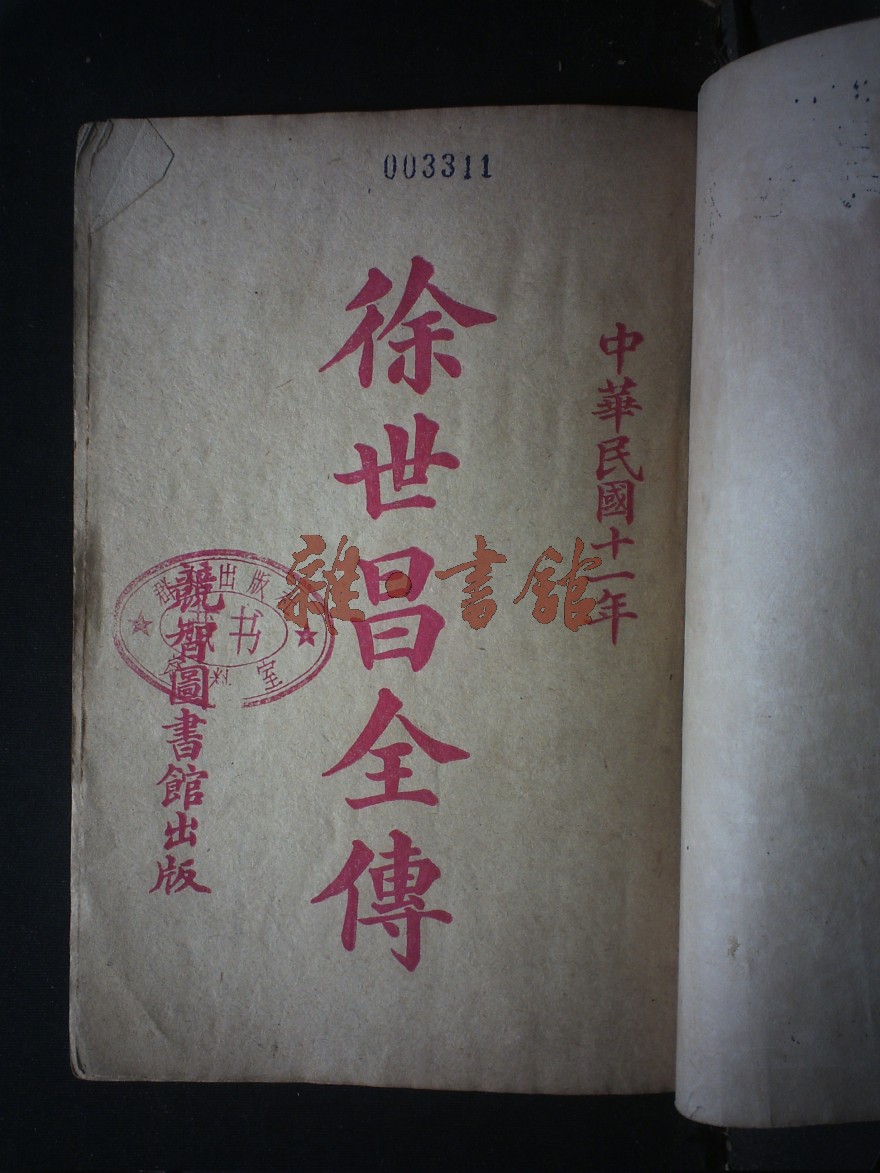 003311
中華民國十一年
徐世昌全傳
競智圖書館出版
雜·書館
出版
书
室